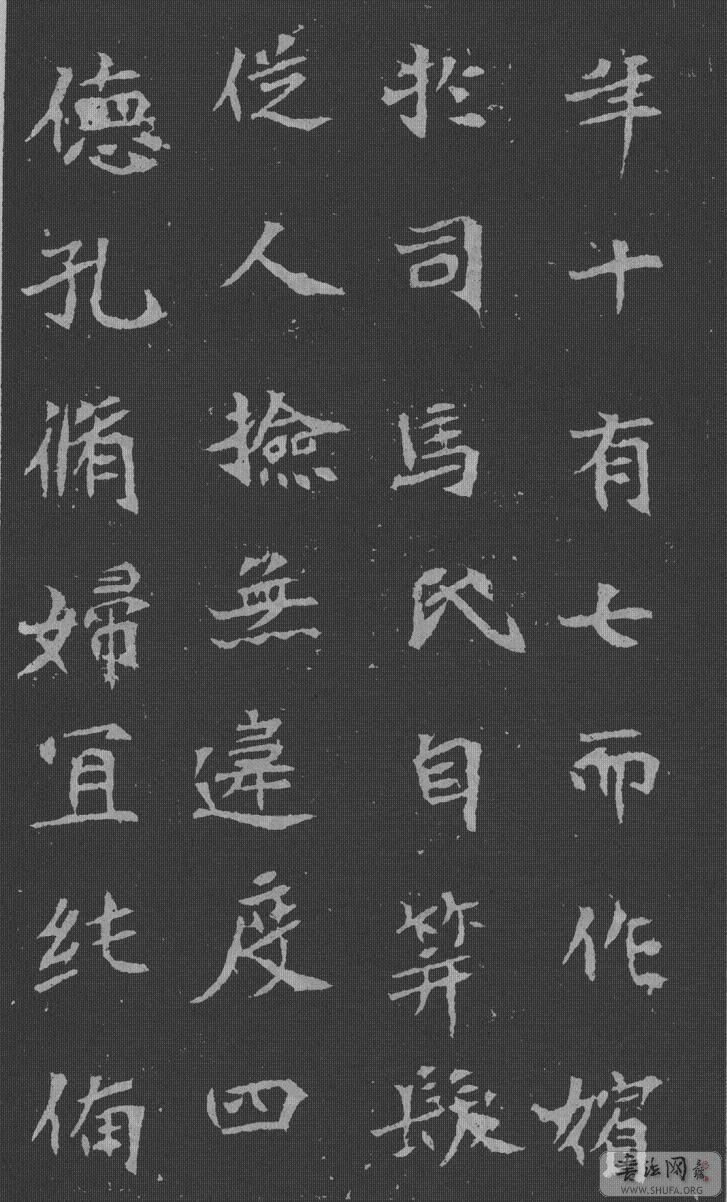 年十有七而作嬪
於司馬氏自笄髮
從人撿無違度四
德孔脩婦宜純備
書法网
WWW.SHUFA.ORG